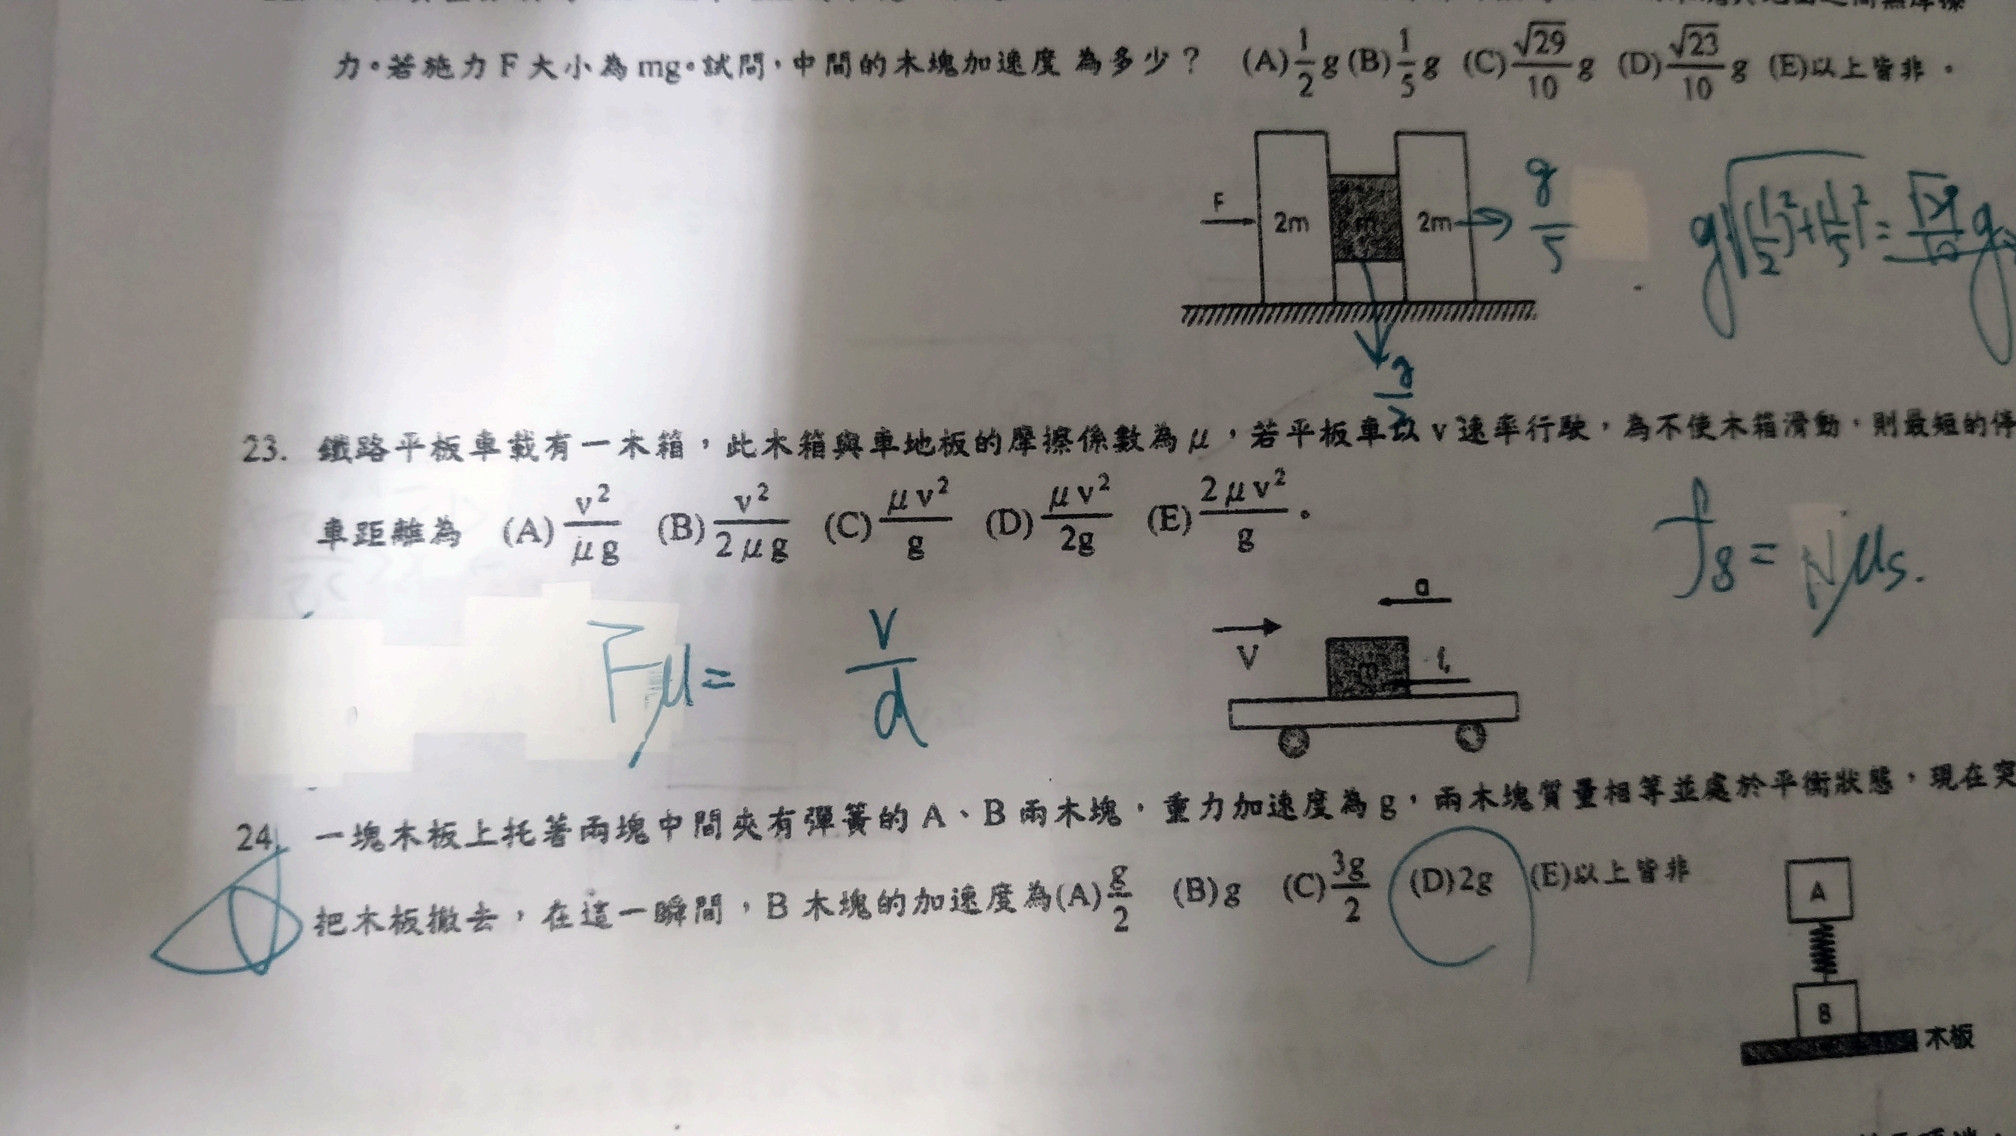 力。若施力 F 大小為 mg。試問，中間的木塊加速度 為多少？ (A) 1/2 g (B) 1/5 g (C) √29/10 g (D) √23/10 g (E)以上皆非。
F
2m
m
2m
g/5
g√((1/2)²+(1/5)²) =
g/2
23. 鐵路平板車載有一木箱，此木箱與車地板的摩擦係數為 μ，若平板車以 v 速率行駛，為不使木箱滑動，則最短的停
車距離為 (A) v²/μg (B) v²/2μg (C) μv²/g (D) μv²/2g (E) 2μv²/g。
Fμ=
v/d
a
V
m
= Nμs.
24. 一塊木板上托著兩塊中間夾有彈簧的 A、B 兩木塊，重力加速度為 g，兩木塊質量相等並處於平衡狀態，現在突
把木板撤去，在這一瞬間，B 木塊的加速度為(A) g/2 (B) g (C) 3g/2 (D) 2g (E)以上皆非
A
B
木板